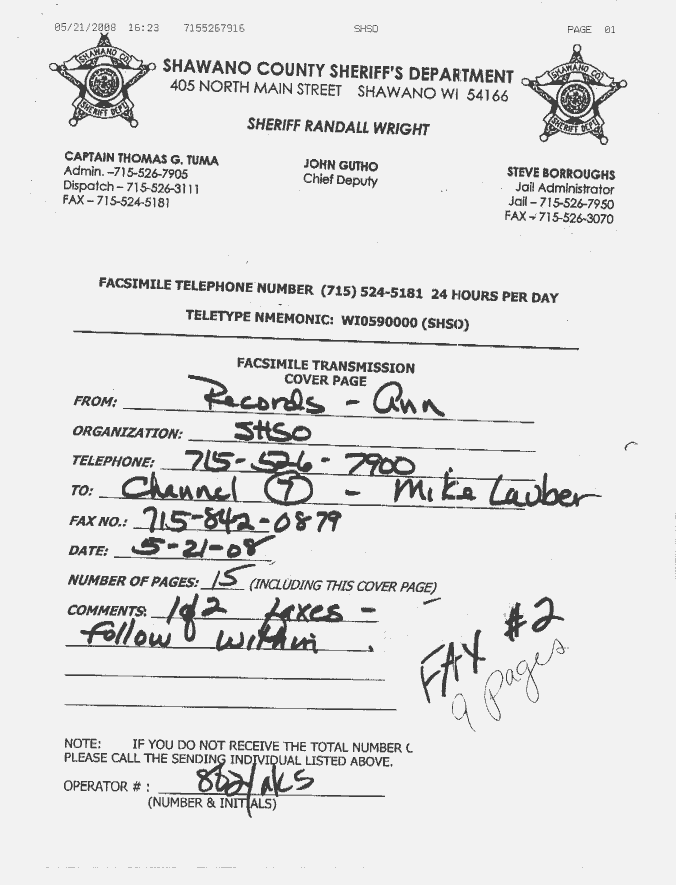 05/21/2008 16:23 7155267916 SHSO PAGE 01
SHAWANO CO.
SHERIFF DEPT.
SHAWANO COUNTY SHERIFF'S DEPARTMENT
405 NORTH MAIN STREET SHAWANO WI 54166
SHAWANO CO.
SHERIFF DEPT.
SHERIFF RANDALL WRIGHT
CAPTAIN THOMAS G. TUMA
Admin. –715-526-7905
Dispatch – 715-526-3111
FAX – 715-524-5181
JOHN GUTHO
Chief Deputy
STEVE BORROUGHS
Jail Administrator
Jail – 715-526-7950
FAX – 715-526-3070
FACSIMILE TELEPHONE NUMBER (715) 524-5181 24 HOURS PER DAY
TELETYPE NMEMONIC: WI0590000 (SHSO)
FACSIMILE TRANSMISSION
COVER PAGE
FROM: Records - Ann
ORGANIZATION: SHSO
TELEPHONE: 715-526-7900
TO: Channel 7 - Mike Lauber
FAX NO.: 715-842-0879
DATE: 5-21-08
NUMBER OF PAGES: 15 (INCLUDING THIS COVER PAGE)
COMMENTS: 1 of 2 faxes -
follow within .
FAX #2
9 pages
NOTE: IF YOU DO NOT RECEIVE THE TOTAL NUMBER
PLEASE CALL THE SENDING INDIVIDUAL LISTED ABOVE.
OPERATOR # : 862/aks
(NUMBER & INITIALS)